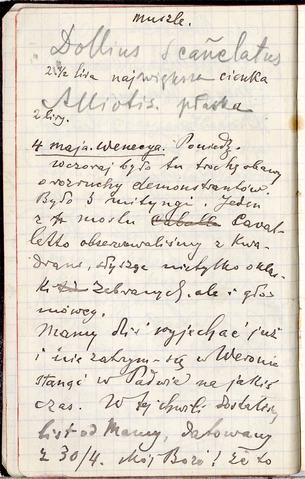 muszle.
Dollius Scañelatus
2 1/2 lira największa cienka
Alliotis. płaska
2 liry.
4 maja. Wenecya. Poniedz.
Wczoraj było tu trochę obawy
o rozruchy demonstrantów.
Było 3 mityngi. Jeden
z mostu Caballo Caval-
letto obserwowaliśmy z Kwa-
drans, słysząc nietylko okla-
ski zebranych, ale i głos
mówcy.
Mamy dziś wyjechać już
i nie zatrzym. się w Weronie
stanąć w Padwie na jakiś
czas. W tej chwili dostałem
list od Mamy, datowany
z 30/4. Mój Boże! Że to